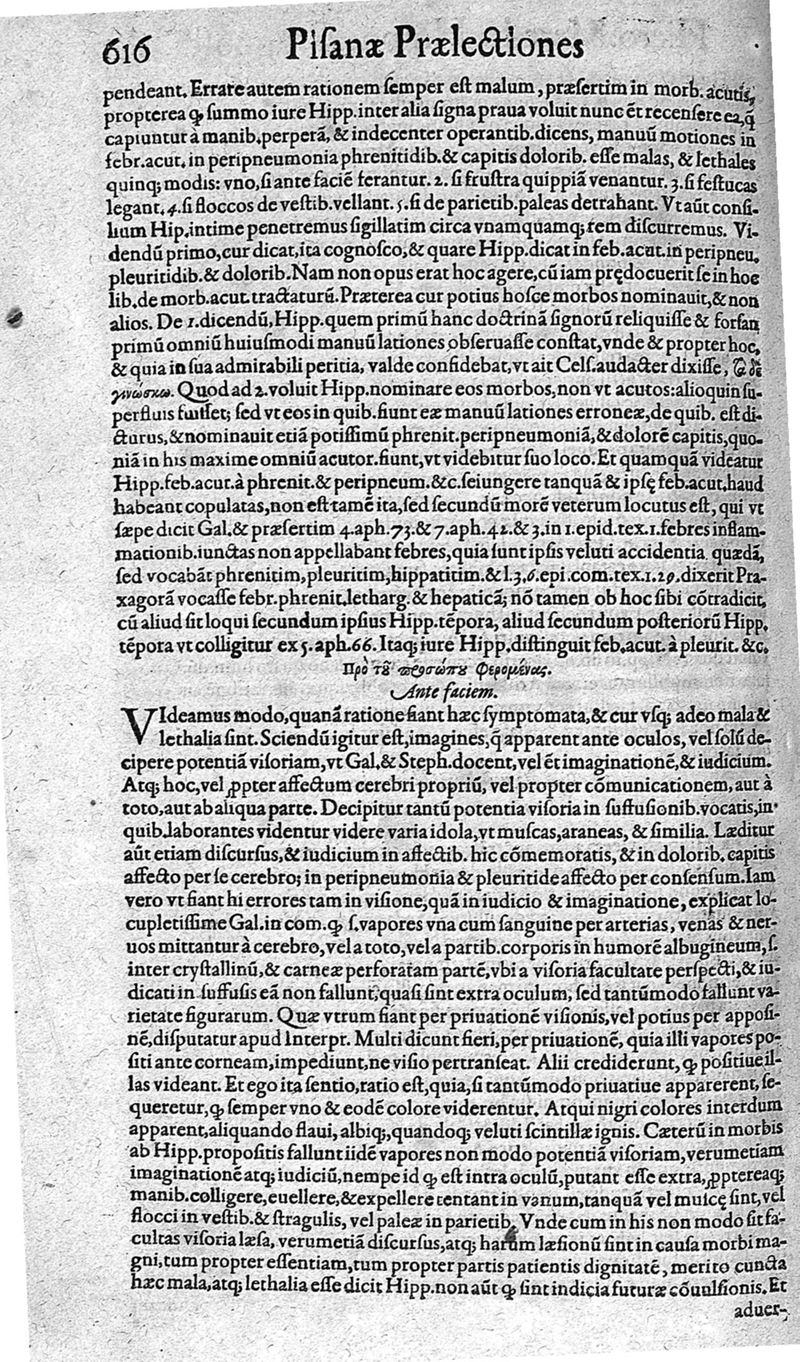 616 Pisanæ Prælectiones
pendeant. Errare autem rationem semper est malum, præsertim in morb. acutis,
propterea ꝙ summo iure Hipp. inter alia signa praua voluit nunc ẽt recensere ea, q̃
capiuntur à manib. perperã, & indecenter operantib. dicens, manuũ motiones in
febr. acut. in peripneumonia phrenitidib. & capitis dolorib. esse malas, & lethales
quinq; modis: vno, si ante faciẽ ferantur. 2. si frustra quippiã venantur. 3. si festucas
legant. 4. si floccos de vestib. vellant. 5. si de parietib. paleas detrahant. Vt aũt consi-
lium Hip. intime penetremus sigillatim circa vnamquamq; rem discurremus. Vi-
dendũ primo, cur dicat, ita cognosco, & quare Hipp. dicat in feb. acut. in peripneu.
pleuritidib. & dolorib. Nam non opus erat hoc agere, cũ iam prędocuerit se in hoc
lib. de morb. acut. tractaturũ. Præterea cur potius hosce morbos nominauit, & non
alios. De 1. dicendũ, Hipp. quem primũ hanc doctrinã signorũ reliquisse & forsan
primũ omniũ huiusmodi manuũ lationes obseruasse constat, vnde & propter hoc,
& quia in sua admirabili peritia, valde confidebat, vt ait Cels. audacter dixisse, ὧδε
γινώσκω. Quod ad 2. voluit Hipp. nominare eos morbos, non vt acutos: alioquin su-
perfluis fuisset; sed vt eos in quib. fiunt eæ manuũ lationes erroneæ, de quib. est di-
cturus, & nominauit etiã potissimũ phrenit. peripneumoniã, & dolorẽ capitis, quo-
niã in his maxime omniũ acutor. fiunt, vt videbitur suo loco. Et quamquã videatur
Hipp. feb. acut. à phrenit. & peripneum. &c. seiungere tanquã & ipsę feb. acut. haud
habeant copulatas, non est tamẽ ita, sed secundũ morẽ veterum locutus est, qui vt
sæpe dicit Gal. & præsertim 4. aph. 73. & 7. aph. 42. & 3. in 1. epid. tex. 1. febres inflam-
mationib. iunctas non appellabant febres, quia sunt ipsis veluti accidentia quædã,
sed vocabãt phrenitim, pleuritim, hippatitim. & l. 3. 6. epi. com. tex. 1. 29. dixerit Pra-
xagorã vocasse febr. phrenit. letharg. & hepaticã; nõ tamen ob hoc sibi cõtradicit,
cũ aliud sit loqui secundum ipsius Hipp. tẽpora, aliud secundum posteriorũ Hipp.
tẽpora vt colligitur ex 5. aph. 66. Itaq; iure Hipp. distinguit feb. acut. à pleurit. &c.
Πρὸ τοῦ προσώπου φερομένας.
Ante faciem.
VIdeamus modo, quanã ratione fiant hæc symptomata, & cur vsq; adeo mala &
lethalia sint. Sciendũ igitur est, imagines, q̃ apparent ante oculos, vel solũ de-
cipere potentiã visoriam, vt Gal. & Steph. docent, vel ẽt imaginationẽ, & iudicium.
Atq; hoc, vel ꝓpter affectum cerebri propriũ, vel propter cõmunicationem, aut à
toto, aut ab aliqua parte. Decipitur tantũ potentia visoria in suffusionib. vocatis, in
quib. laborantes videntur videre varia idola, vt muscas, araneas, & similia. Læditur
aũt etiam discursus, & iudicium in affectib. hic cõmemoratis, & in dolorib. capitis
affecto per se cerebro; in peripneumonia & pleuritide affecto per consensum. Iam
vero vt fiant hi errores tam in visione, quã in iudicio & imaginatione, explicat lo-
cupletissime Gal. in com. ꝙ s. vapores vna cum sanguine per arterias, venas & ner-
uos mittantur à cerebro, vel a toto, vel a partib. corporis in humorẽ albugineum, s.
inter crystallinũ, & carneæ perforatam partẽ, vbi a visoria facultate perspecti, & iu-
dicati in suffusis eã non fallunt, quasi sint extra oculum, sed tantũmodo fallunt va-
rietate figurarum. Quæ vtrum fiant per priuationẽ visionis, vel potius per apposi-
nẽ, disputatur apud Interpr. Multi dicunt fieri, per priuationẽ, quia illi vapores po-
siti ante corneam, impediunt, ne visio pertranseat. Alii crediderunt, ꝙ positiue il-
las videant. Et ego ita sentio, ratio est, quia, si tantũmodo priuatiue apparerent, se-
queretur, ꝙ semper vno & eodẽ colore viderentur. Atqui nigri colores interdum
apparent, aliquando flaui, albiq;, quandoq; veluti scintillæ ignis. Cæterũ in morbis
ab Hipp. propositis fallunt iidẽ vapores non modo potentiã visoriam, verumetiam
imaginationẽ atq; iudiciũ, nempe id ꝙ est intra oculũ, putant esse extra, ꝓptereaq;
manib. colligere, euellere, & expellere tentant in vanum, tanquã vel muscę sint, vel
flocci in vestib. & stragulis, vel paleæ in parietib. Vnde cum in his non modo sit fa-
cultas visoria læsa, verumetiã discursus, atq; harum læsionũ sint in causa morbi ma-
gni, tum propter essentiam, tum propter partis patientis dignitatẽ, merito cuncta
hæc mala, atq; lethalia esse dicit Hipp. non aũt ꝙ sint indicia futuræ cõuulsionis. Et
aduer-